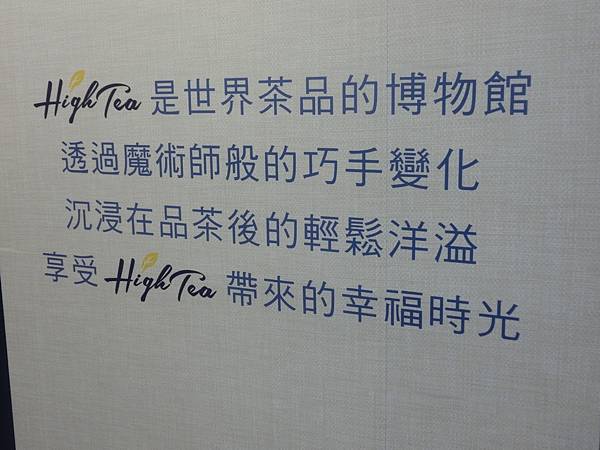 High Tea 是世界茶品的博物館
透過魔術師般的巧手變化
沉浸在品茶後的輕鬆洋溢
享受 High Tea 帶來的幸福時光